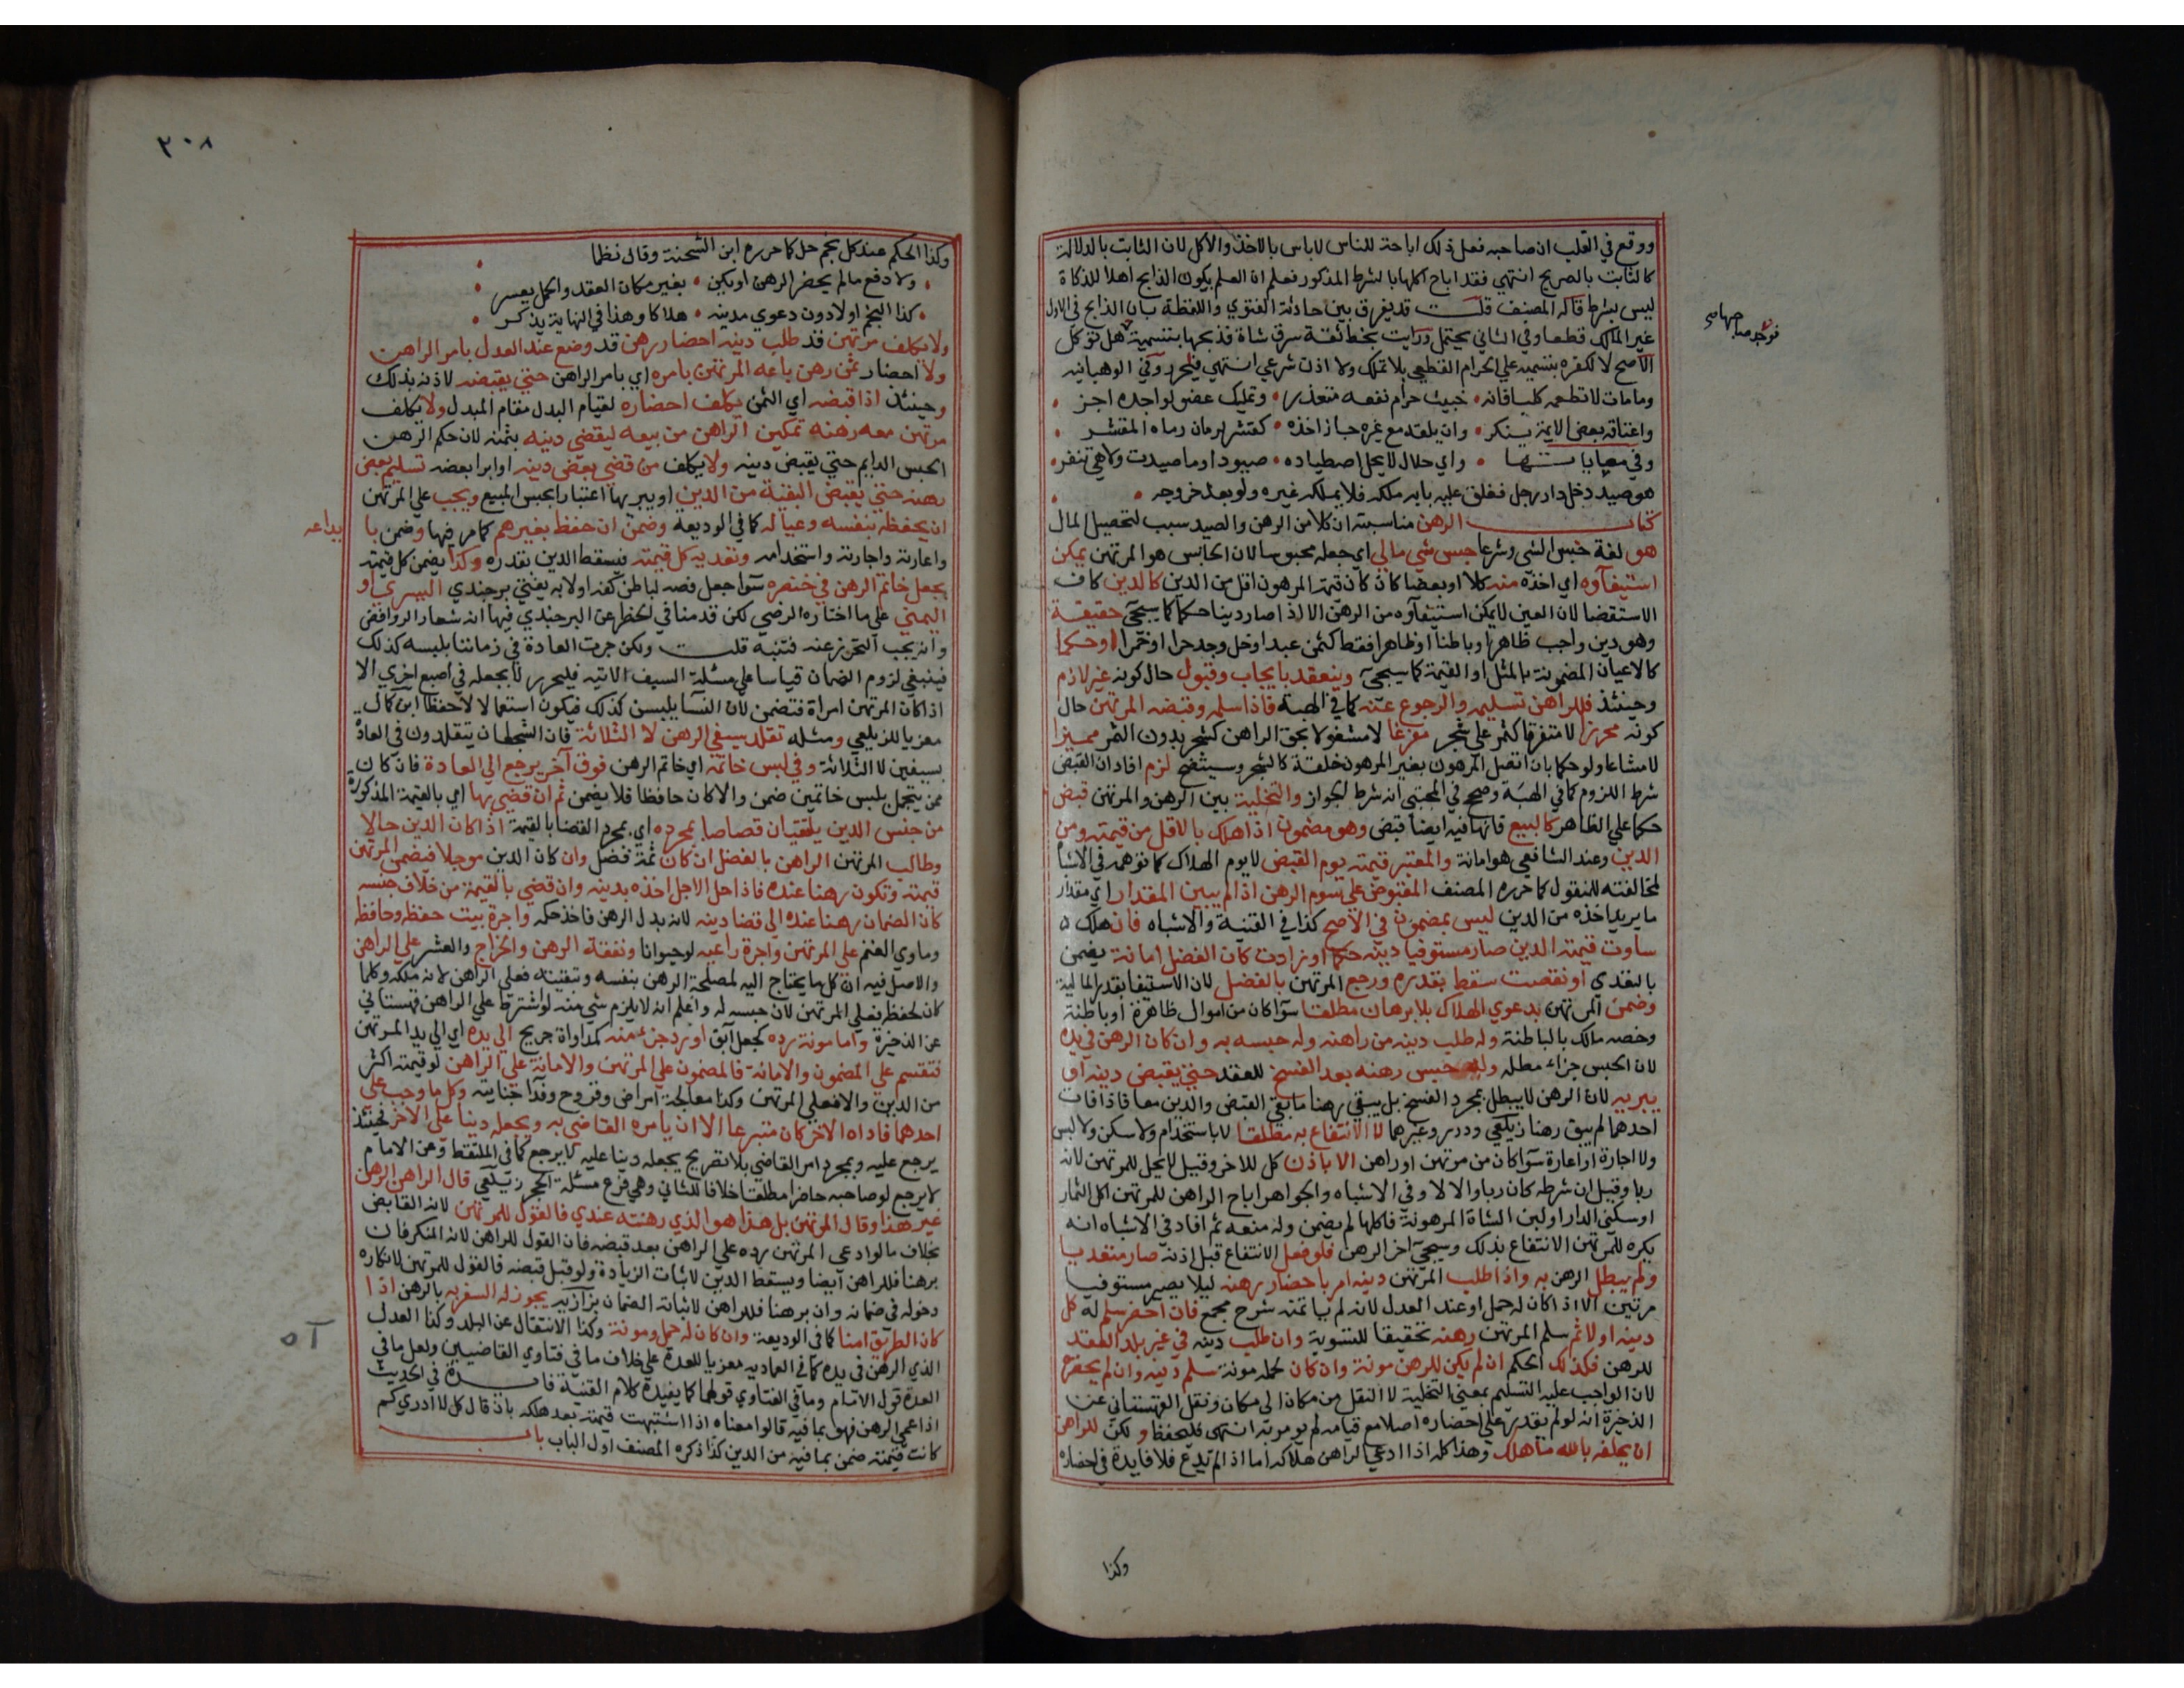 ووقع في القلب ان صاحبه فعل ذلك اباحة للناس لاباس بالاخذ والاكل لان الثابت بالدلالة
كالثابت بالصريح انتهي فقد اباح اكلها بالشرط المذكور فعلم ان العلم بكون الذابح اهلا للذكاة
ليس بشرط قاله المصنف قلت قد يفرق بين حادثة الفتوي واللقطة بان الذابح في الاول
غير المالك قطعا وفي الثاني يحتمل ورايت بخط ثقة سرق شاة فذبحها بتسمية هل تؤكل
الاصح لا لكفره بتسميته علي الحرام القطعي بلا تملك ولا اذن شرعي انتهي فليحرر وفي الوهبانيه
وما مات لا تطعمه كلبا فانه خبيث حرام نفعه متعذر وتمليك عضو لواجده اجز
واعتاقه بعض الايمة ينكر وان يلقه مع غيره جاز اخذه كقشر لرمان رماه المقشر
وفي معاياتها واي حلال لا يحل اصطياده صيودا وما صيدت ولا هي تنفر
هو صيد دخل دار رجل فغلق عليه بابه ملكه فلا يملكه غيره ولو بعد خروجه
كتاب الرهن مناسبته ان كلا من الرهن والصيد سبب لتحصيل المال
هو لغة حبس الشي وشرعا حبس شي مالي اي جعله محبوسا لان الحابس هو المرتهن يمكن
استيفآوه اي اخذه منه كلا او بعضا كان كان قيمة المرهون اقل من الدين كالدين كاف
الاستقصا لان العين لا يمكن استيفآوه من الرهن الا اذا صار دينا حكما كما سيجئ حقيقة
وهو دين واجب ظاهرا وباطنا او ظاهرا فقط كثمن عبد او خل وجد حرا او خمرا او حكما
كالاعيان المضمونة بالمثل او القيمة كما سيجئ وينعقد بايجاب وقبول حال كونه غير لازم
وحينئذ فللراهن تسليمه والرجوع عنه كما في الهبة فاذا سلمه وقبضه المرتهن حال
كونه محرزا لا متفرقا كثمر علي شجر مفرغا لا مشغولا بحق الراهن كشجر بدون الثمر مميزا
لا مشاعا ولو حكما بان اتصل المرهون بغير المرهون خلقة كالشجر وسيتضح لزم افاد ان القبض
شرط اللزوم كما في الهبة وصحح في المجتبي انه شرط الجواز والتخلية بين الرهن والمرتهن قبض
حكما علي الظاهر كالبيع فانها فيه ايضا قبض وهو مضمون اذا هلك بالاقل من قيمته ومن
الدين وعند الشافعي هو امانة والمعتبر قيمته يوم القبض لا يوم الهلاك كما توهمه في الاشباه
لمخالفته للمنقول كما حرره المصنف المقبوض علي سوم الرهن اذا لم يبين المقدار اي مقدار
ما يريد اخذه من الدين ليس بمضمون في الاصح كذا في القنية والاشباه فان هلك
ساوت قيمته الدين صار مستوفيا دينه حكما او زادت كان الفضل امانة يضمن
بالتعدي او نقصت سقط بقدره ورجع المرتهن بالفضل لان الاستيفا بقدر المالية
وضمن المرتهن بدعوي الهلاك بلا برهان مطلقا سوآ كان من اموال ظاهرة او باطنة
وخصه مالك بالباطنة وله طلب دينه من راهنه وله حبسه به وان كان الرهن في يده
لان الحبس جزاء مطله وله حبس رهنه بعد الفسخ للعقد حتي يقبض دينه او
يبريه لان الرهن لا يبطل بمجرد الفسخ بل يبقي رهنا ما بقي القبض والدين معا فاذا فات
احدهما لم يبق رهنا زيلعي ودرر وغيرهما لا الانتفاع به مطلقا لا باستخدام ولا سكن ولا لبس
ولا اجارة او اعارة سوآ كان من مرتهن او راهن الا باذن كل للاخر وقيل لا يحل للمرتهن لانه
ربا وقيل ان شرطه كان ربا والا لا وفي الاشباه والجواهر اباح الراهن للمرتهن اكل الثمار
او سكني الدار او لبن الشاة المرهونة فاكلها لم يضمن وله منعه ثم افاد في الاشباه انه
يكره للمرتهن الانتفاع بذلك وسيجئ اخر الرهن فلو فعل الانتفاع قبل اذنه صار متعديا
ولم يبطل الرهن به واذا طلب المرتهن دينه امر باحضار رهنه ليلا يصير مستوفيا
مرتين الا اذا كان له حمل او عند العدل لانه لم ياتمنه شرح مجمع فان احضر سلم له كل
دينه اولا ثم سلم المرتهن رهنه تحقيقا للتسوية وان طلب دينه في غير بلد العقد
للرهن فكذلك الحكم ان لم يكن للرهن مونة وان كان لحمله مونة سلم دينه وان لم يحضره
لان الواجب عليه التسليم بمعني التخلية لا النقل من مكان الي مكان ونقل القهستاني عن
الذخيرة انه لو لم يقدر علي احضاره اصلا مع قيامه لم يومر به انتهي فليحفظ و لكن للراهن
ان يحلفه بالله ما هلك وهذا كله اذا ادعي الراهن هلاكه اما اذا لم يدع فلا فايدة في احضاره
وكذا
٢٠٨
وكذا الحكم عند كل نجم حل كما حرره ابن الشحنة وقال نظما
ولا دفع ما لم يحضر الرهن او يكن بغير مكان العقد والحمل يعسر
كذا النجم او لا دون دعوي مدينه هلاكا وهذا في النهاية يذكر
ولا يكلف مرتهن قد طلب دينه احضار رهن قد وضع عند العدل بامر الراهن
ولا احضار ثمن رهن باعه المرتهن بامره اي بامر الراهن حتي يقبضه لاذنه بذلك
وحينئذ اذا قبضه اي الثمن يكلف احضاره لقيام البدل مقام المبدل ولا يكلف
مرتهن معه رهنه تمكين الراهن من بيعه ليقضي دينه بثمنه لان حكم الرهن
الحبس الدايم حتي يقبض دينه ولا يكلف من قضي بعض دينه او ابرا بعضه تسليم بعض
رهنه حتي يقبض البقية من الدين او يبريها اعتبارا بحبس المبيع ويجب علي المرتهن
ان يحفظه بنفسه وعياله كما في الوديعة وضمن ان حفظ بغيرهم كما مر فيها وضمن با
يداعه
واعارته واجارته واستخدامه وتعديه كل قيمته فيسقط الدين بقدره وكذا يضمن كل قيمته
بجعل خاتم الرهن في خنصره سوآ جعل فصه لباطن كفه او لا به يفتي برجندي اليسري او
اليمني علي ما اختاره الرضي لكن قدمنا في الحظر عن البرجندي فيها انه شعار الروافض
وانه يجب التحرز عنه فتنبه قلت ولكن جرت العادة في زماننا بلبسه كذلك
فينبغي لزوم الضمان قياسا علي مسئلة السيف الاتيه فليحرر لا بجعله في اصبع اخري الا
اذا كان المرتهن امراة فتضمن لان النسا يلبسن كذلك فيكون استعمالا لا حفظا ابن كمال
معزيا للزيلعي ومثله تقلد سيفي الرهن لا الثلاثة فان الشجعان يتقلدون في العادة
بسيفين لا الثلاثة وفي لبس خاتمه اي خاتم الرهن فوق آخر يرجع الي العادة فان كان
ممن يتجمل بلبس خاتمين ضمن والا كان حافظا فلا يضمن ثم ان قضي بها اي بالقيمة المذكورة
من جنس الدين يلتقيان قصاصا بمجرده اي بمجرد القضا بالقيمة اذا كان الدين حالا
وطالب المرتهن الراهن بالفضل ان كان ثمة فضل وان كان الدين موجلا فيضمن المرتهن
قيمته وتكون رهنا عنده فاذا حل الاجل اخذه بدينه وان قضي بالقيمة من خلاف جنسه
كان الضمان رهنا عنده الي قضا دينه لانه بدل الرهن فاخذ حكمه واجرة بيت حفظه وحافظه
وماوي الغنم علي المرتهن واجرة راعيه لو حيوانا ونفقة الرهن والخراج والعشر علي الراهن
والاصل فيه ان كل ما يحتاج اليه لمصلحة الرهن بنفسه وتبقيته فعلي الراهن لانه ملكه وكلما
كان لحفظه فعلي المرتهن لان حبسه له واعلم انه لا يلزم شي منه لو اشترط علي الراهن قهستاني
عن الذخيرة واما مونة رده كجعل آبق او رد جزء منه كمداواة جريح الي يده اي الي يد المرتهن
فتنقسم علي المضمون والامانة فالمضمون علي المرتهن والامانة علي الراهن لو قيمته اكثر
من الدين والا فعلي المرتهن وكذا معالجة امراض وقروح وفدآ جنايته وكل ما وجب علي
احدهما فاداه الاخر كان متبرعا الا ان يامره القاضي به ويجعله دينا علي الاخر فحينئذ
يرجع عليه وبمجرد امر القاضي بلا تصريح بجعله دينا عليه لا يرجع كما في الملتقط وعن الامام
لا يرجع لو صاحبه حاضرا مطلقا خلافا للثاني وهي فرع مسئلة الحجر زيلعي قال الراهن الرهن
غير هذا وقال المرتهن بل هذا هو الذي رهنته عندي فالقول للمرتهن لانه القابض
بخلاف ما لو ادعي المرتهن رده علي الراهن بعد قبضه فان القول للراهن لانه المنكر فان
برهنا فللراهن ايضا ويسقط الدين لاثبات الزيادة ولو قبل قبضه فالقول للمرتهن لانكاره
دخوله في ضمانه وان برهنا فللراهن لاثباته الضمان بزازيه يجوز له السفر به بالرهن اذا
كان الطريق امنا كما في الوديعة وان كان له حمل ومونة وكذا الانتقال عن البلد وكذا العدل
الذي الرهن في يده كما في العماديه معزيا للعدة علي خلاف ما في فتاوي القاضيين ولعل ما في
العدة قول الامام وما في الفتاوي قولهما كما يفيده كلام القنية فايدة في الحديث
اذا عمي الرهن فهو بما فيه قالوا معناه اذا اشتبهت قيمته بعد هلكه بان قال كل لا ادري كم
كانت قيمته ضمن بما فيه من الدين كذا ذكره المصنف اول الباب باب